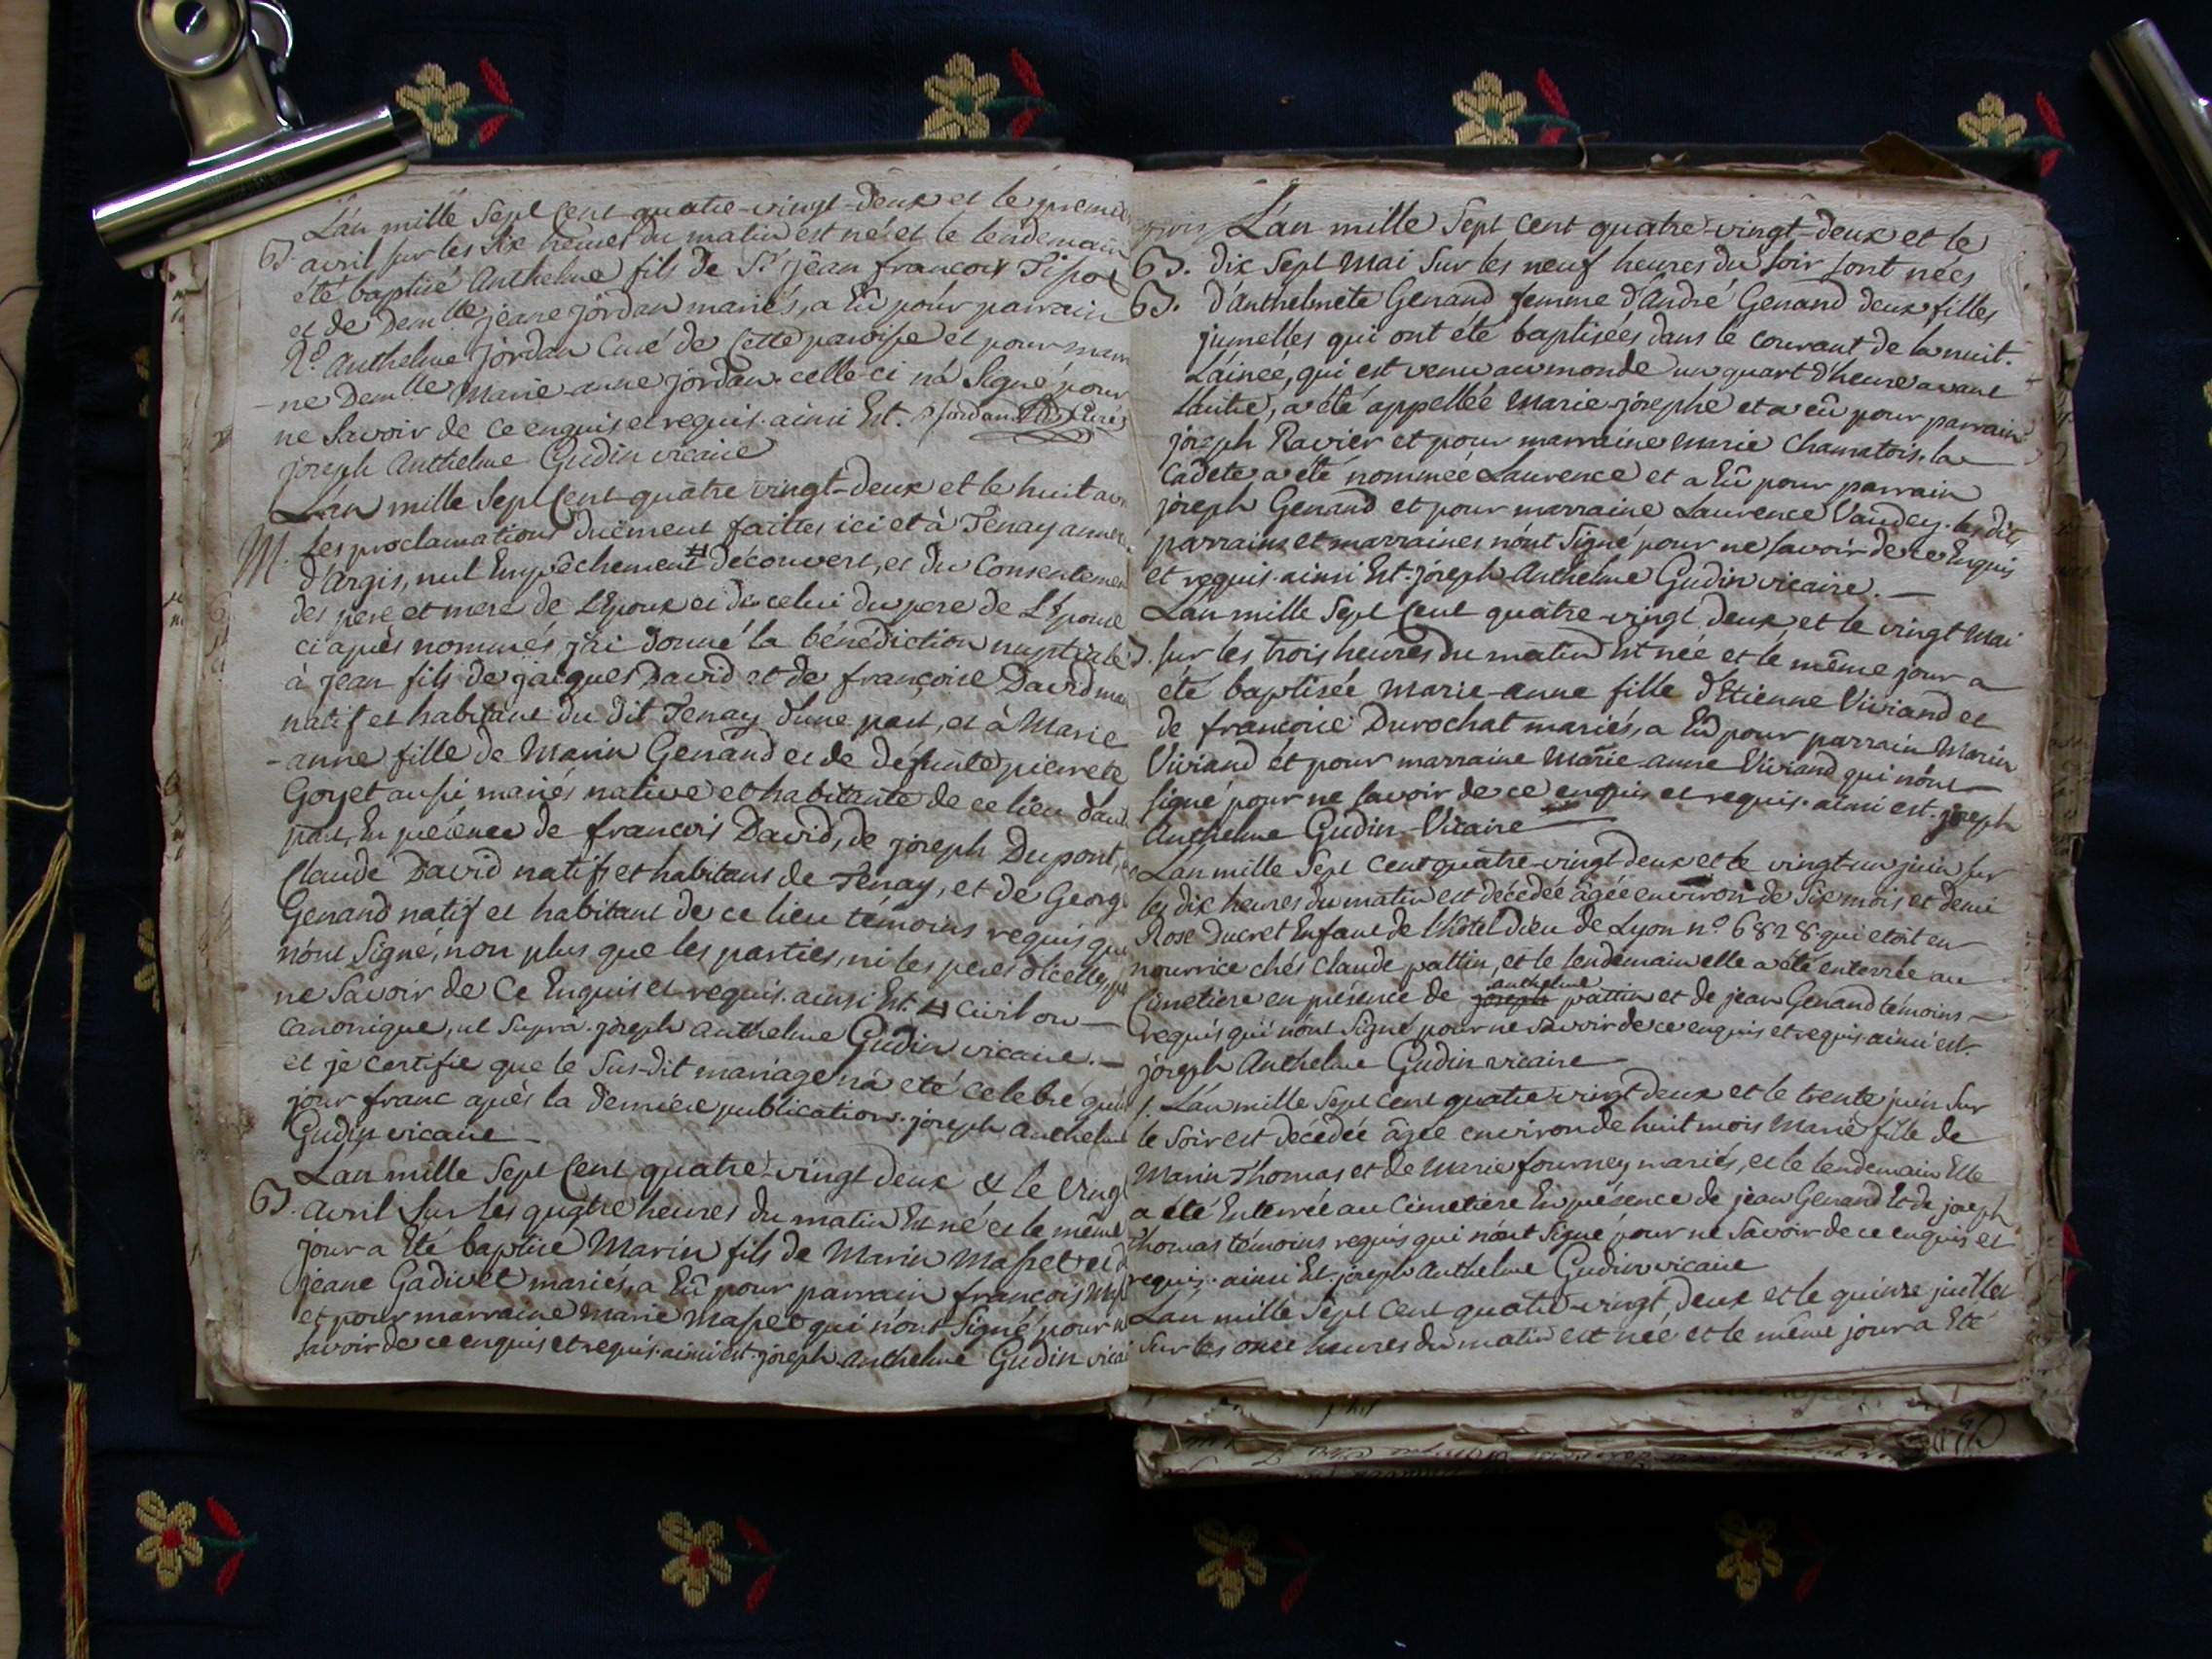 L'an mille Sept Cent quatre-vingt-deux et le premie
B. avril sur les six heures du matin est né et le lendemain
été baptisé Anthelme fils de Sr. jean francois
et de Demlle. jeane jordan mariés, a Eû pour parrain
Anthelme jordan Curé de Cette paroisse et pour mar
-ne Demlle Marie-anne jordan. celle-ci n'a Signé pour
ne Savoir de ce enquis et requis. ainsi Est. jordan Curé
joseph Anthelme Gudin vicaire
L'an mille Sept Cent quatre vingt-deux et le huit av
M. Les proclamations duëment faittes ici et à Tenay annex
d'Argis, nul Empêchement # découvert, et du Consenteme
des pere et mere de L'Epoux et de celui du pere de L'Epouse
ci après nommés, j'ai donné la bénédiction nuptiale
à jean fils de jacques David et de françoise David ma
natif et habitant du dit Tenay d'une part, et à Marie
-anne fille de Marin Genand et de défunte pierrete
Goyet aussi mariés native et habitante de ce lieu d'aut
part, En présence de francois David, de joseph Dupont,
Claude David natifs et habitans de Tenay, et de Georg
Genand natif et habitant de ce lieu témoins requis qui
n'ont Signé, non plus que les parties, ni les peres d'icelles, p
ne Savoir de Ce Enquis et requis. ainsi Est. # civil ou
canonique, ut Supra. joseph Anthelme Gudin vicaire.
et je certifie que le Sus-dit mariage n'a eté celebré qu'un
jour franc après la derniere publication. joseph Anthelme
Gudin vicaire
L'an mille Sept Cent quatre-vingt deux & le vingt
B. Avril sur les quatre heures du matin Est né et le même
jour a Eté baptisé Marin fils de Marin Masset et d
jeane Gadivet mariés, a Eû pour parrain francois
et pour marraine Marie Masset qui n'ont Signé pour n
savoir de ce enquis et requis. ainsi est. joseph Anthelme Gudin vicai
L'an mille Sept cent quatre-vingt-deux et le
B. dix Sept Mai Sur les neuf heures du soir sont nées
B. d'Anthelmete Genand femme d'André Genand deux filles
jumelles qui ont été baptisées dans le courant de la nuit.
L'ainée, qui est venu au monde un quart d'heure avant
L'autre, a été appellée Marie-josephe et a eû pour parrain
joseph Ravier et pour marraine Marie Chamatois. la
Cadete a été nommée Laurence et a Eû pour parrain
joseph Genand et pour marraine Laurence Vaudey. les dits
parrains et marraines n'ont Signé pour ne savoir de ce Enquis
et requis. ainsi Est. joseph Anthelme Gudin vicaire.
L'an mille Sept Cent quatre-vingt deux et le vingt Mai
sur les trois heures du matin Est née et le même jour a
été baptisée Marie-Anne fille d'Etienne Viviand et
de francoise Durochat mariés, a Eû pour parrain Marin
Viviand et pour marraine Marie-anne Viviand qui n'ont
signé pour ne savoir de ce enquis et requis. ainsi est. joseph
Anthelme Gudin Vicaire
L'an mille Sept cent quatre-vingt-deux et le vingt-un juin sur
les dix heures du matin est décédée âgée environ de Six mois et demi
Rose Ducret Enfant de l'hôtel dieu de Lyon no. 6828 qui etoit en
nourrice chés Claude pattin, et le lendemain elle a été enterrée au
anthelme
Cimetiere en présence de joseph pattin et de jean Genand témoins
requis qui n'ont Signé pour ne Savoir de ce enquis et requis. ainsi est.
joseph Anthelme Gudin vicaire
L'an mille Sept cent quatre vingt deux et le trente juin Sur
le Soir est décédée âgée environ de huit mois Marie fille de
Marin Thomas et de Marie fourney mariés, et le lendemain Elle
a été Enterrée au Cimetiere En présence de jean Genand Et de joseph
Thomas témoins requis qui n'ont Signé pour ne Savoir de ce enquis et
requis. ainsi Est. joseph Anthelme Gudin vicaire
L'an mille Sept Cent quatre-vingt deux et le quinze juillet
Sur les onze heures du matin est née et le même jour a Eté